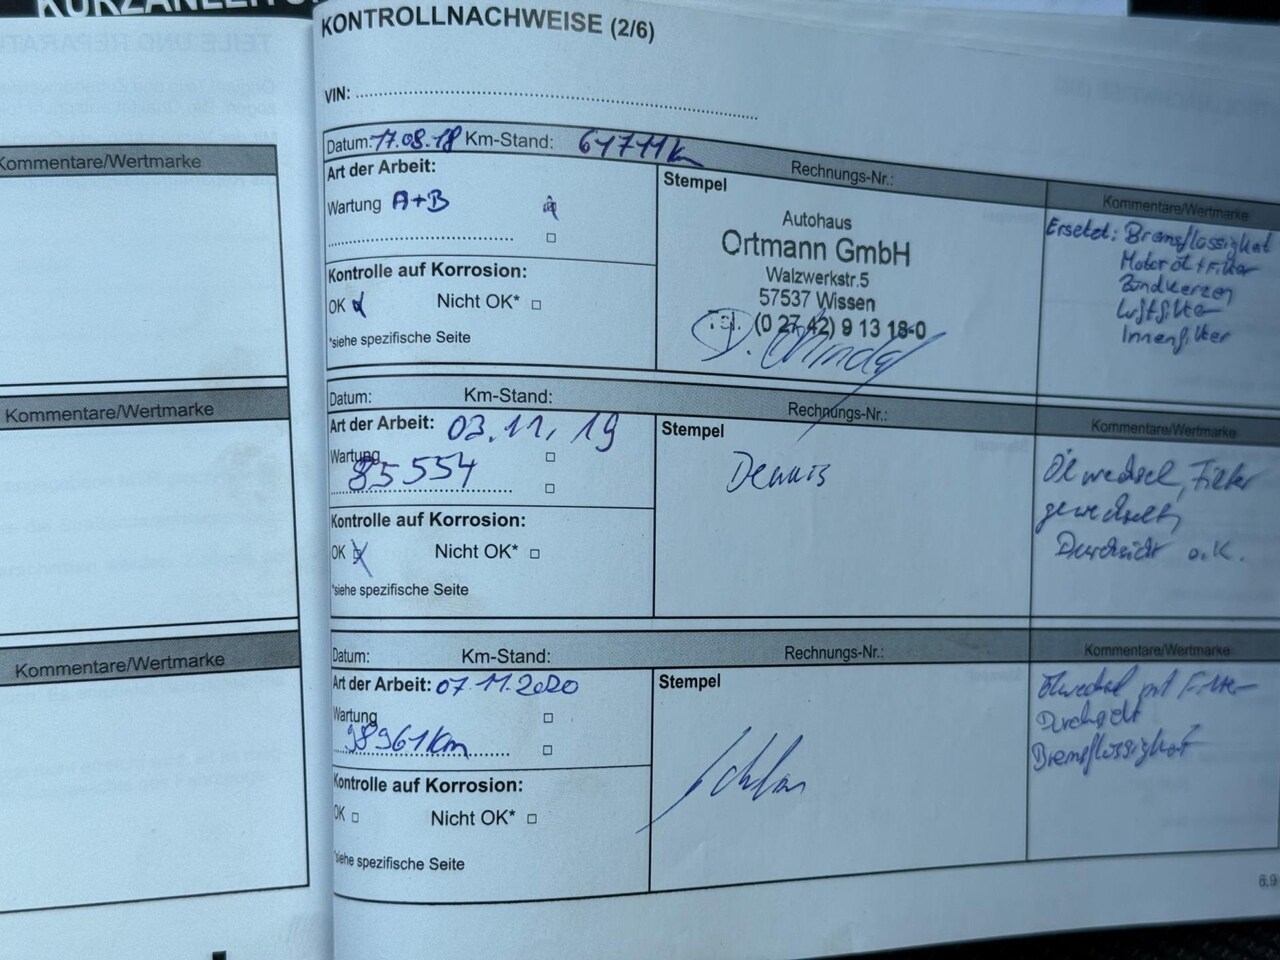 KURZANLEITU
KONTROLLNACHWEISE (2/6)
VIN:
Kommentare/Wertmarke
Kommentare/Wertmarke
Kommentare/Wertmarke
Datum: 17.08.18 Km-Stand: 61711 km
Rechnungs-Nr.:
Kommentare/Wertmarke
Art der Arbeit:
Wartung A+B
Kontrolle auf Korrosion:
OK Nicht OK*
*siehe spezifische Seite
Stempel
Autohaus
Ortmann GmbH
Walzwerkstr.5
57537 Wissen
Tel. (0 27 42) 9 13 18-0
Ersetzt: Bremsflüssigkeit
Motoröl + Filter
Zündkerzen
Luftfilter
Innenfilter
Datum: Km-Stand:
Rechnungs-Nr.:
Kommentare/Wertmarke
Art der Arbeit: 03.11.19
Wartung
85554
Kontrolle auf Korrosion:
OK Nicht OK*
*siehe spezifische Seite
Stempel
Dennis
Ölwechsel, Filter
gewechselt,
Durchsicht o.K.
Datum: Km-Stand:
Rechnungs-Nr.:
Kommentare/Wertmarke
Art der Arbeit: 07.11.2020
Wartung
98961 km
Kontrolle auf Korrosion:
OK Nicht OK*
*siehe spezifische Seite
Stempel
Ölwechsel mit Filter
Durchsicht
Bremsflüssigkeit
6.9